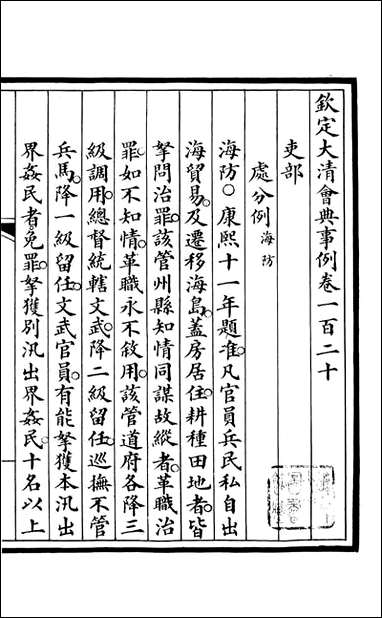 欽定大清會典事例卷一百二十
吏部
處分例海防
海防○康熙十一年題准凡官員兵民私自出
海貿易及遷移海島蓋房居住耕種田地者皆
拏問治罪該管州縣知情同謀故縱者革職治
罪如不知情革職永不敘用該管道府各降三
級調用總督統轄文武降二級留任巡撫不管
兵馬降一級留任文武官員有能拏獲本汛出
界姦民者免罪拏獲別汛出界姦民十名以上